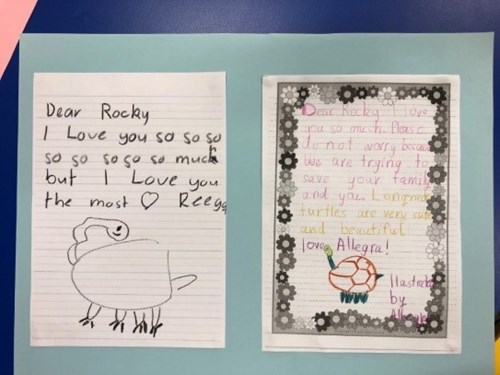 Dear Rocky
I Love you so so so
so so so so so much
but I Love you
the most
Dear Rocky I love
you so much. Please
do not worry because
we are trying to
save your family
and you. Longneck
turtles are very cute
and beautiful
love Allegra!
by